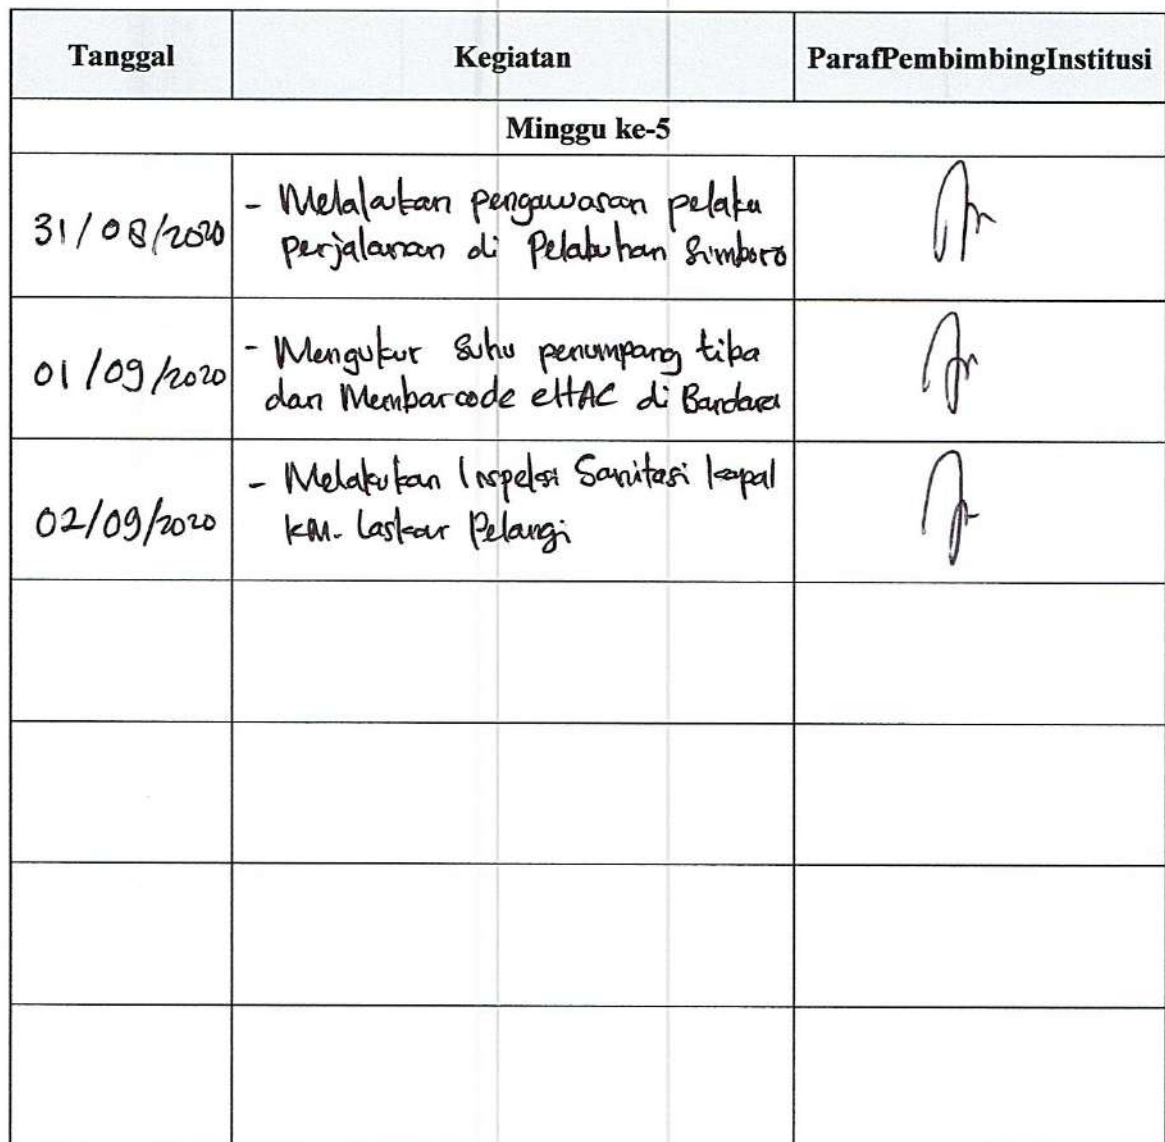 Tanggal Kegiatan ParafPembimbingInstitusi
Minggu ke-5
31/08/2020 - Melakukan pengawasan pelaku
perjalanan di Pelabuhan Simboro
01/09/2020 - Mengukur Suhu penumpang tiba
dan Membarcode eHAC di Bandara
02/09/2020 - Melakukan Inspeksi Sanitasi kapal
KM. Laskar Pelangi